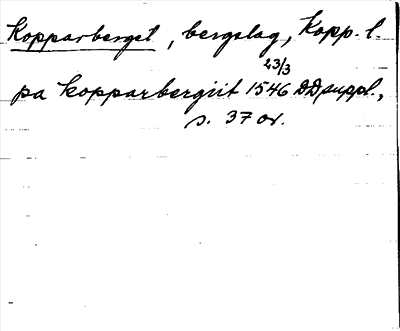 Kopparberget, bergslag, Kopp. l.
23/3
pa kopparbergiit 1546 DD suppl.,
s. 37 or.